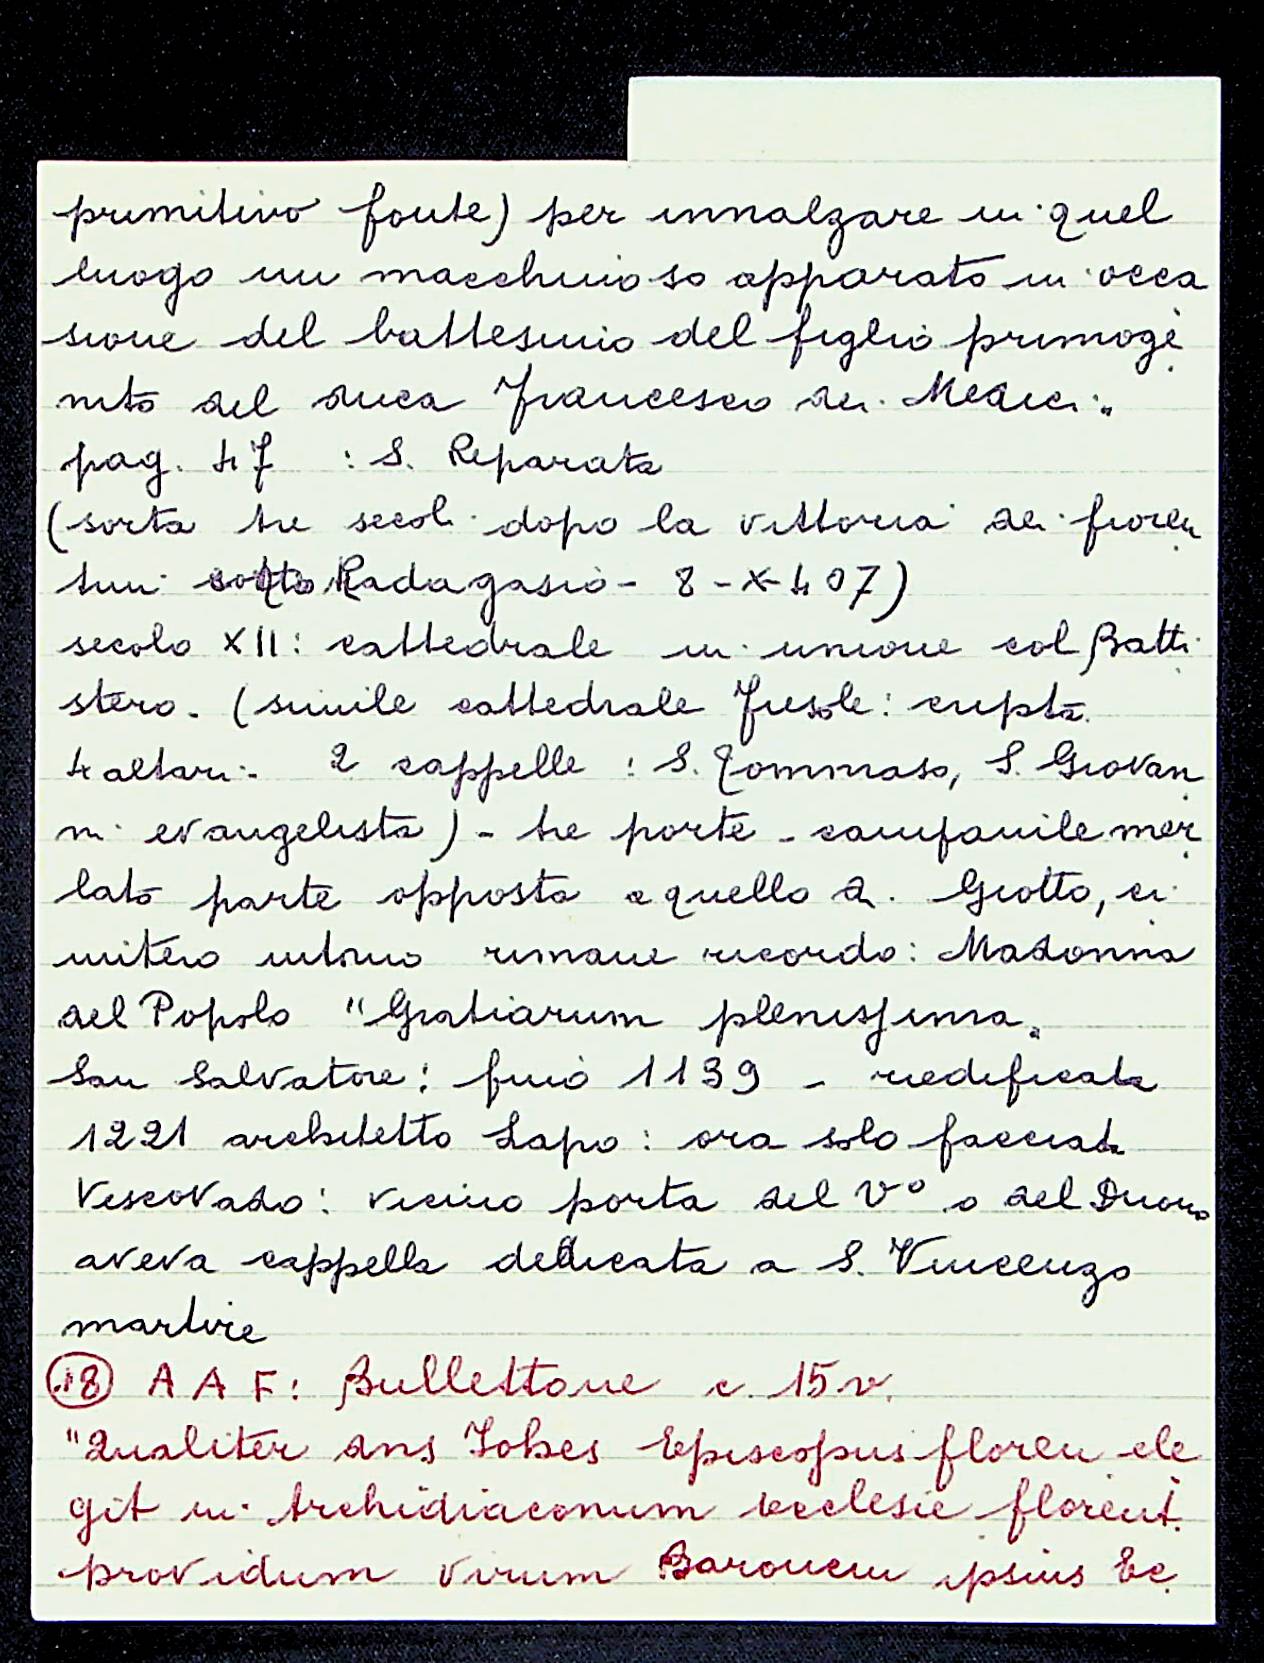 primitivo fonte) per innalzare in quel
luogo un macchinoso apparato in occa
sione del battesimo del figlio primoge
nito del duca Francesco dei Medici"
pag. 47 : S. Reparata
(sorta tre secoli dopo la vittoria dei fioren
tini sotto Radagasio - 8-X-407)
secolo XII: cattedrale in unione col Batti
stero. (simile cattedrale Fiesole: cripta
4 altari - 2 cappelle : S. Tommaso, S. Giovan
ni evangelista) - tre porte - campanile mer
lato parte opposta a quello di Giotto, ci
mitero intorno rimane ricordo: Madonna
del Popolo "Gratiarum plenissima"
San Salvatore: finio 1139 - riedificata
1221 architetto Lapo: ora solo facciata
Vescovado: vicino porta del V° o del Duomo
aveva cappella dedicata a S. Vincenzo
martire
18 A A F: Bullettone c. 15 v.
"Qualiter dns Johes Episcopus floren ele
git in Archidiaconum ecclesie florent.
providum virum Baronem ipsius Ec